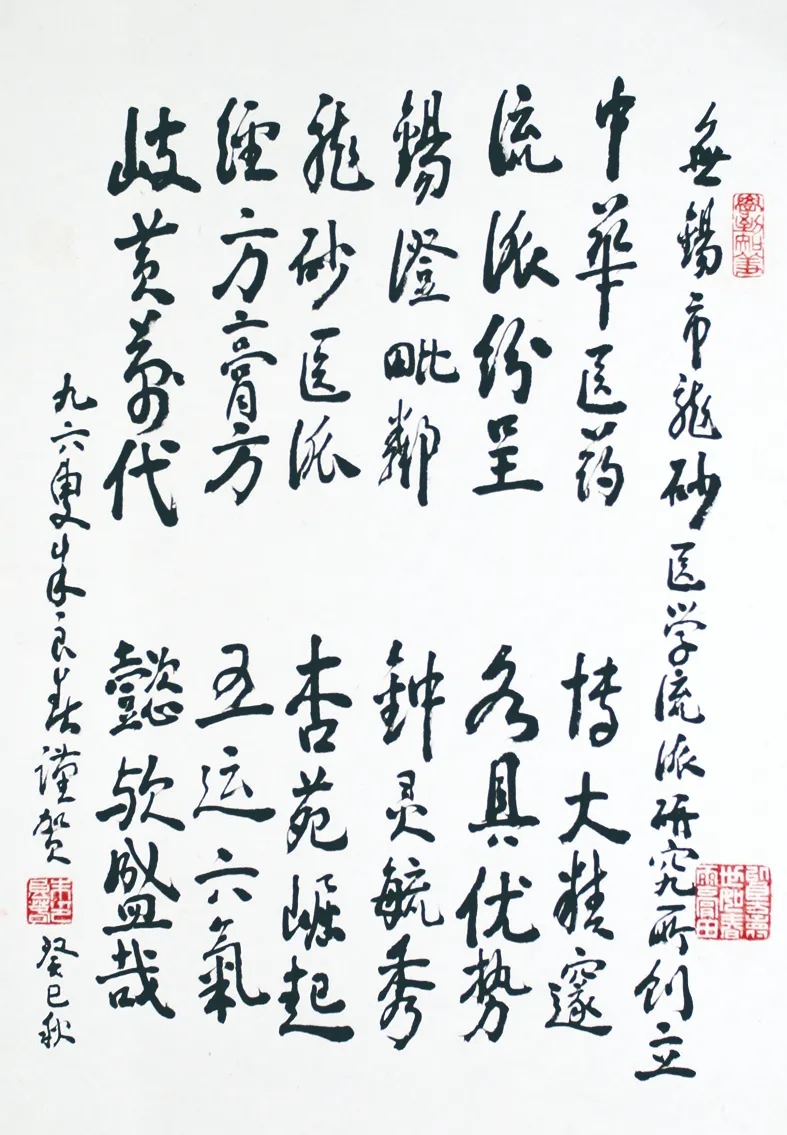 無錫市龍砂医学流派研究所创立
中華医药 博大精邃
流派纷呈 各具优势
錫澄毗鄰 鈡灵毓秀
龍砂医派 杏苑崛起
經方膏方 五运六氣
岐黄萬代 懿欤盛哉
九六叟朱良春謹贺 癸巳秋